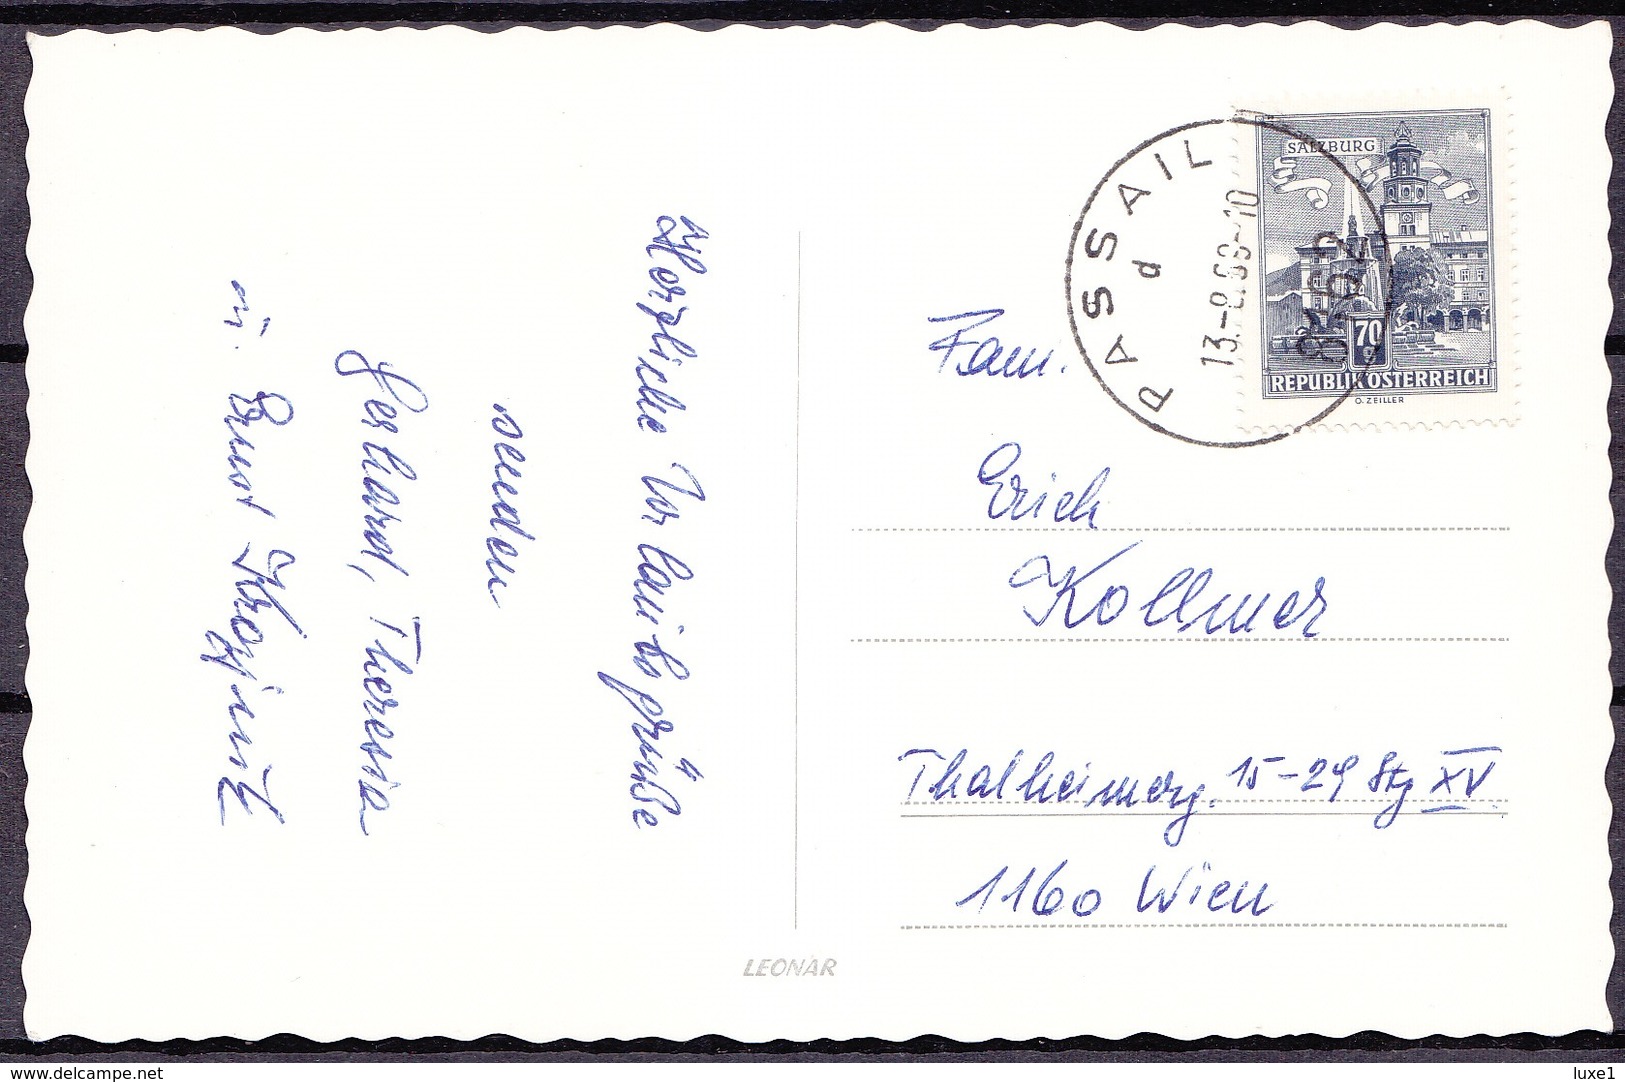 Herzliche Urlaubsgrüße
senden
Gerhard, Theresia
u. Ernst
Fam.
Erich
Kollmer
Thalheimerg. 15-29 Stg XV
1160 Wien
LEONAR
PASSAIL
d
13.-8.69-10
8162
SALZBURG
70
g
REPUBLIK ÖSTERREICH
O. ZEILLER
www.delcampe.net
luxe1